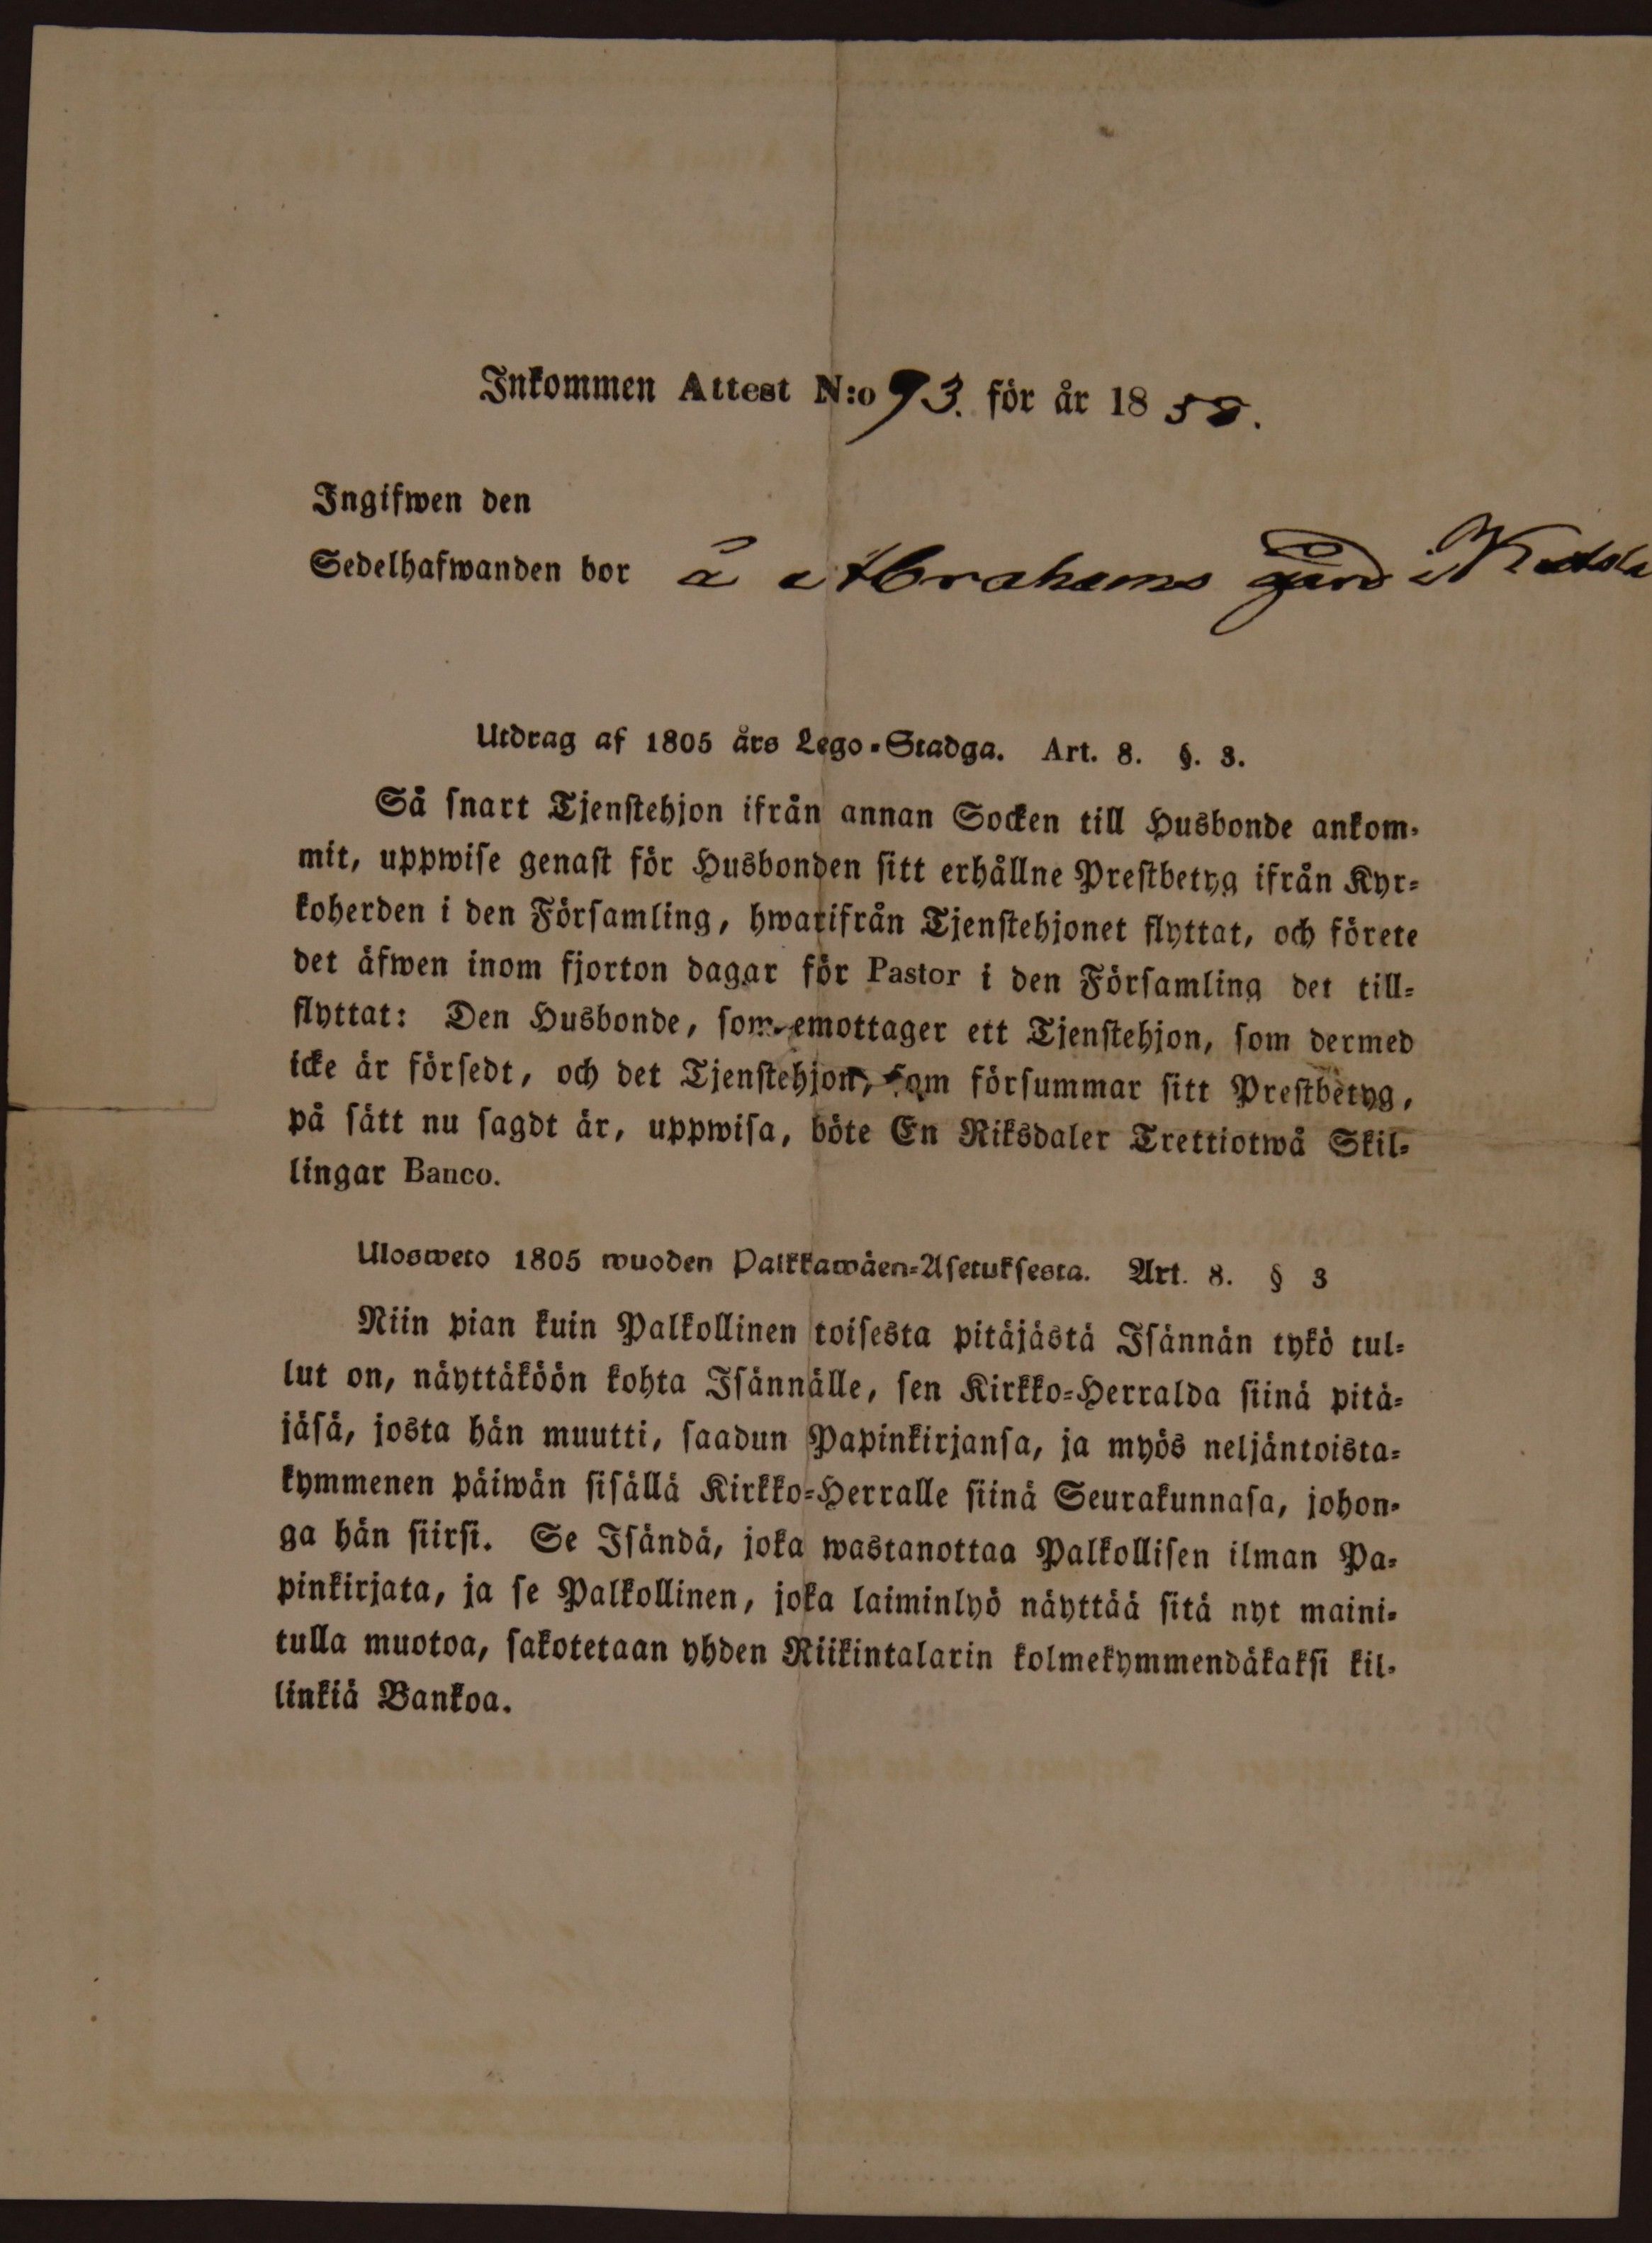 Inkommen Attest N:o 93. för år 1858.
Ingifwen den
Sedelhafwanden bor å Abrahams gård i
Utdrag af 1805 års Lego-Stadga. Art. 8. §. 3.
Så snart Tjenstehjon ifrån annan Socken till Husbonde ankom-
mit, uppwise genast för Husbonden sitt erhållne Prestbetyg ifrån Kyr-
koherden i den Församling, hwarifrån Tjenstehjonet flyttat, och förete
det äfwen inom fjorton dagar för Pastor i den Församling det till-
flyttat: Den Husbonde, som emottager ett Tjenstehjon, som dermed
icke är försedt, och det Tjenstehjon, som försummar sitt Prestbetyg,
på sätt nu sagdt är, uppwisa, böte En Riksdaler Trettiotwå Skil-
lingar Banco.
Ulosweto 1805 wuoden Palkkawäen-Asetuksesta. Art. 8. § 3
Niin pian kuin Palkollinen toisesta pitäjästä Isännän tykö tul-
lut on, näyttäköön kohta Isännälle, sen Kirkko-Herralda siinä pitä-
jäsä, josta hän muutti, saadun Papinkirjansa, ja myös neljäntoista-
kymmenen päiwän sisällä Kirkko-Herralle siinä Seurakunnasa, johon-
ga hän siirsi. Se Isändä, joka wastanottaa Palkollisen ilman Pa-
pinkirjata, ja se Palkollinen, joka laiminlyö näyttää sitä nyt maini-
tulla muotoa, sakotetaan yhden Riikintalarin kolmekymmendäkaksi kil-
linkiä Bankoa.